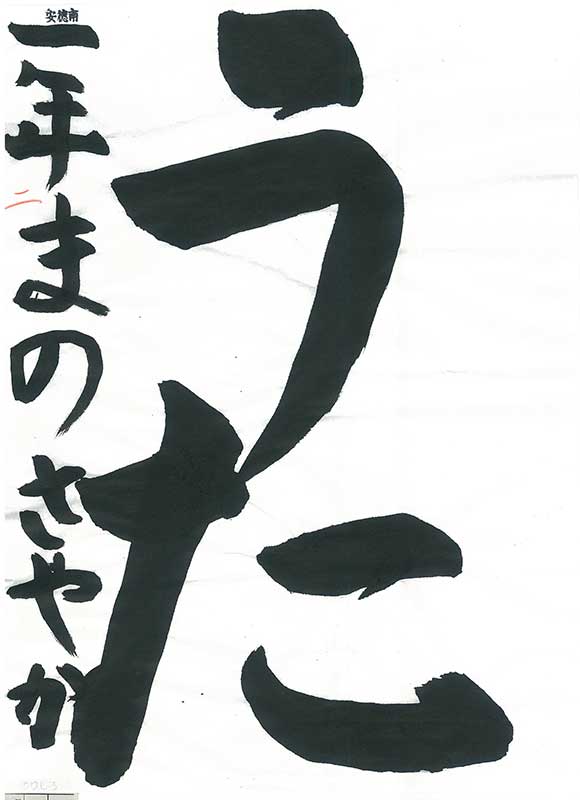 うた
安徳南
一年まのさやか
二